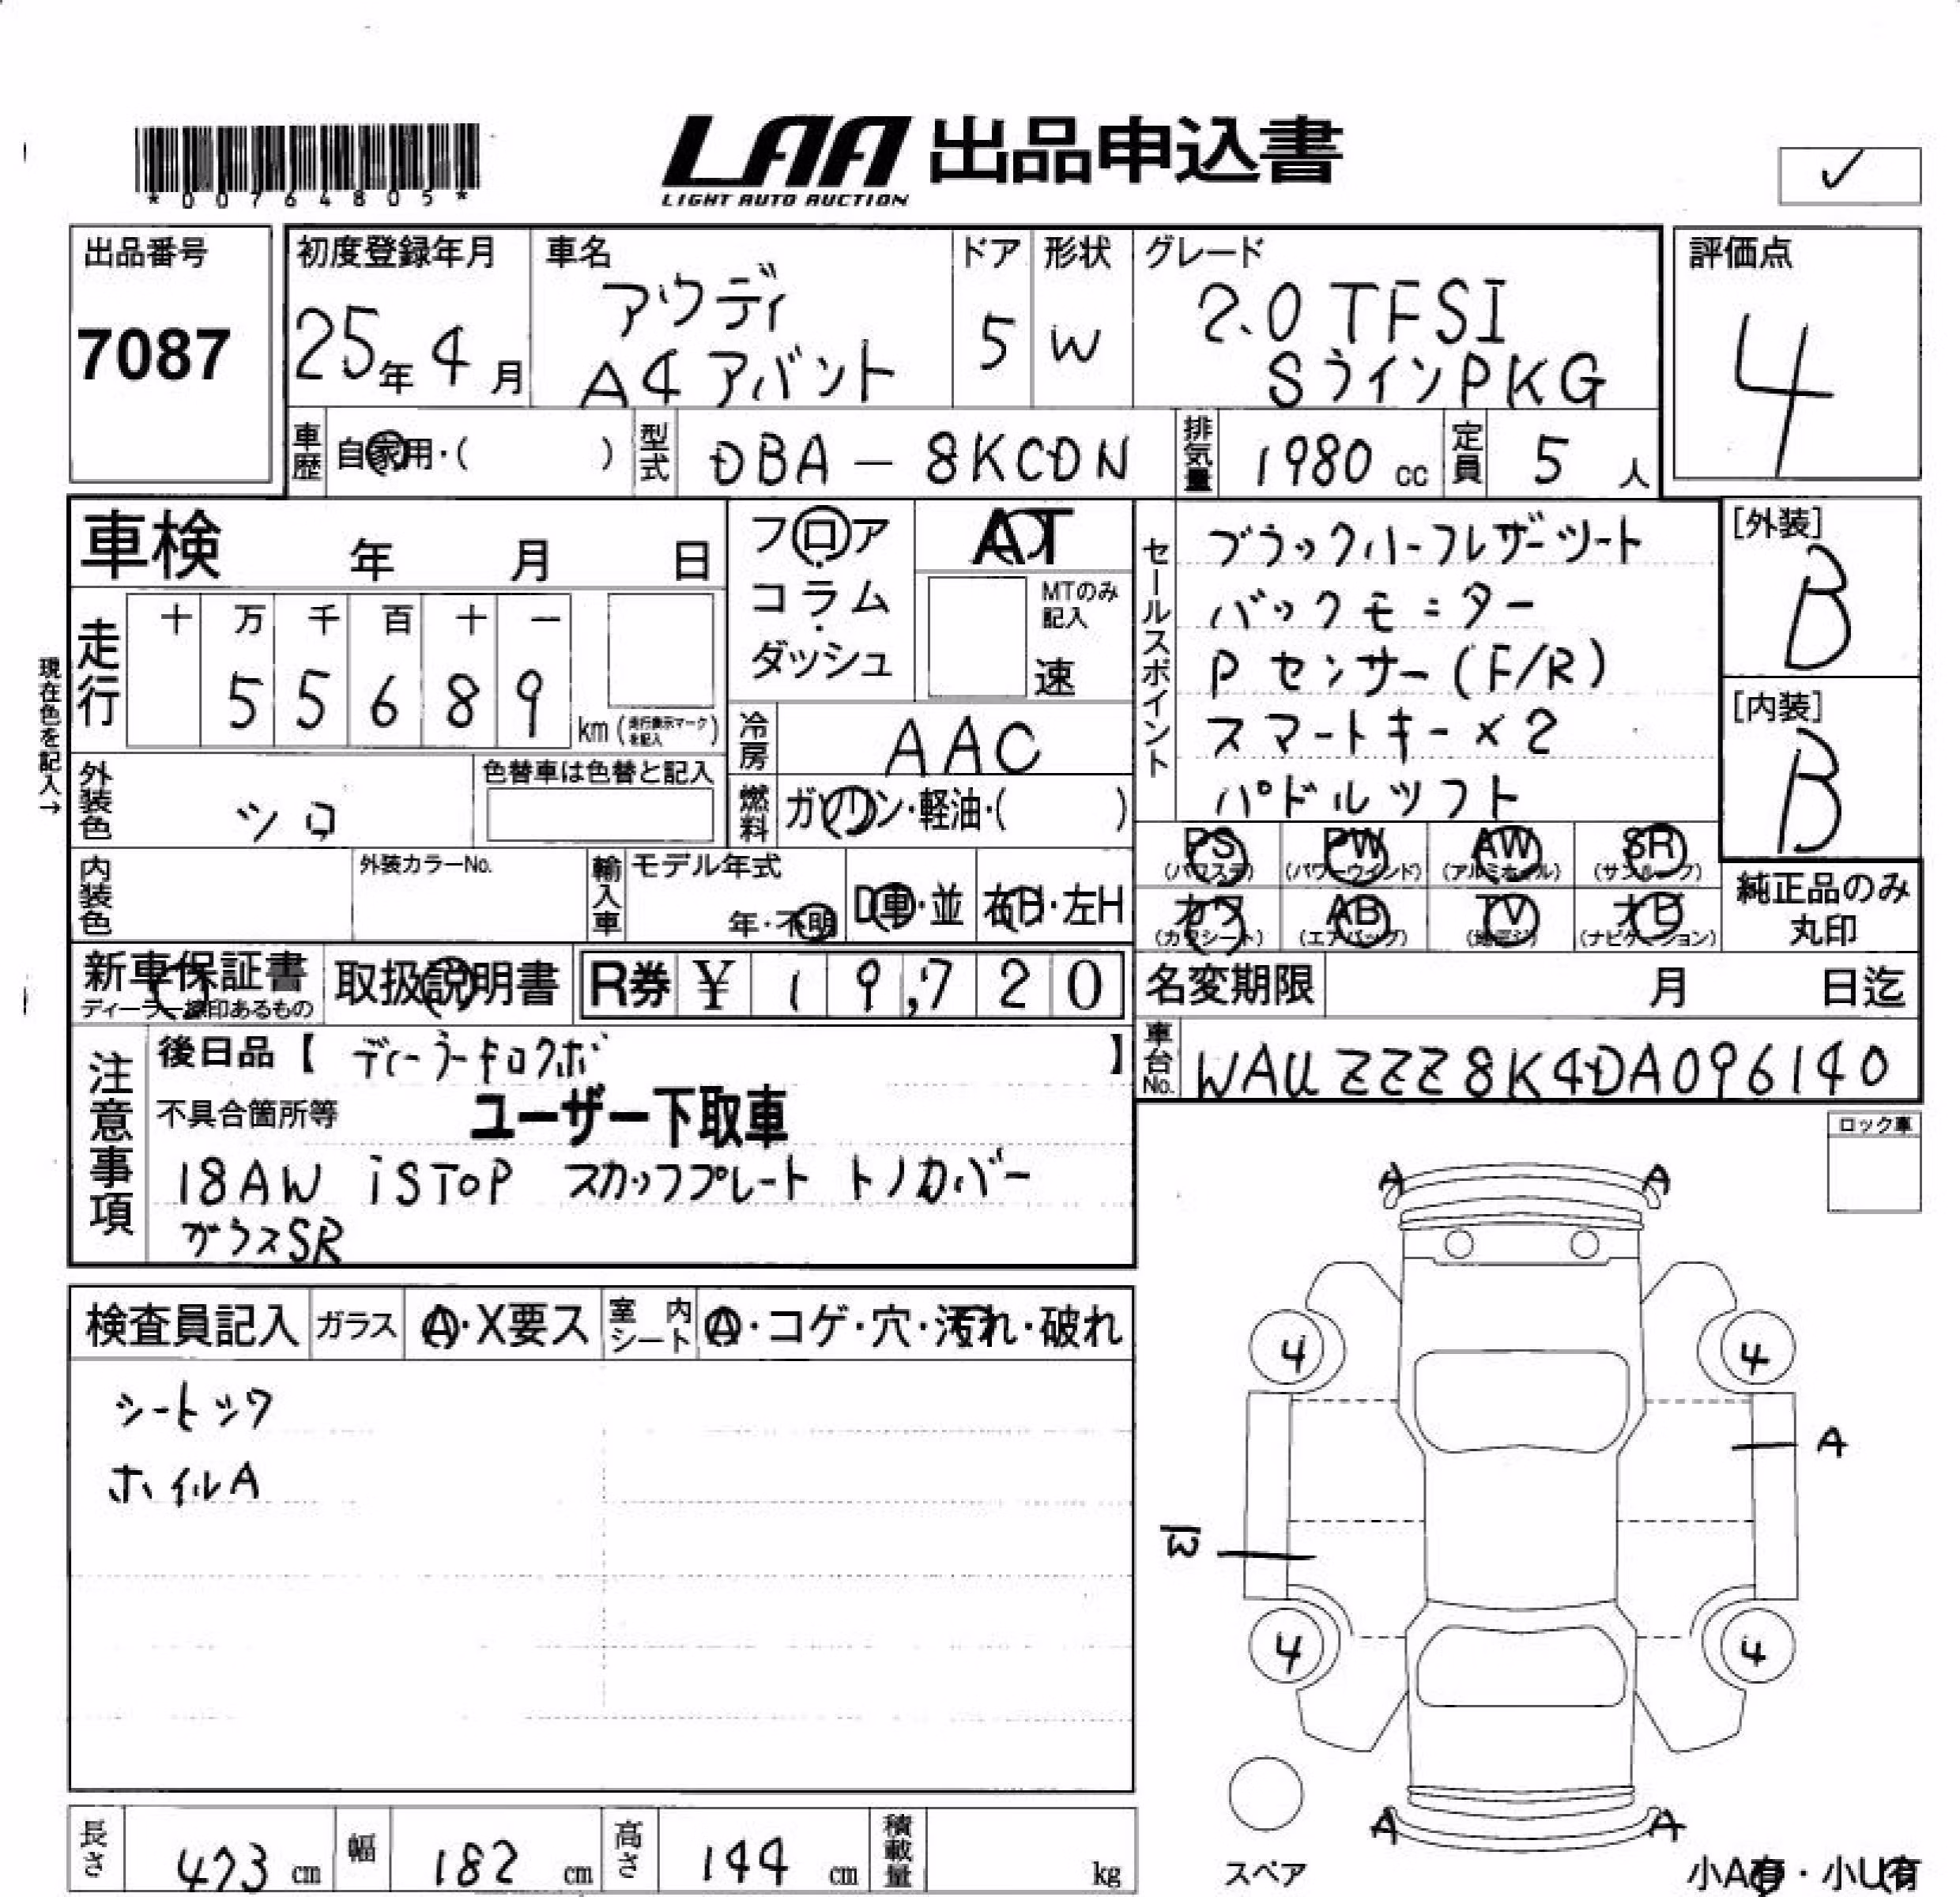 *00764805*
LAA 出品申込書
LIGHT AUTO AUCTION
✓
出品番号
7087
初度登録年月
25年4月
車名
アウディ
A4 アバント
ドア
5
形状
W
グレード
2.0 TFSI
SラインPKG
評価点
4
車歴
自家用・( )
型式
DBA-8KCDN
排気量
1980 cc
定員
5 人
車検 年 月 日
フロア・
コラム・
ダッシュ
AT
MTのみ
記入
速
現在色を記入→
走行
十 万 千 百 十 一
5 5 6 8 9
km (走行表示マークを記入)
冷房
AAC
外装色
シロ
色替車は色替と記入
燃料
ガソリン・軽油・( )
内装色
外装カラーNo.
輸入車
モデル年式
年・不明
D車・並
右H・左H
セールスポイント
ブラックハーフレザーシート
バックモニター
Pセンサー(F/R)
スマートキー×2
パドルシフト
[外装]
B
[内装]
B
PS
(パワステ)
PW
(パワーウインド)
AW
(アルミホイル)
SR
(サンルーフ)
カワ
(カワシート)
AB
(エアバッグ)
TV
(地デジ)
ナビ
(ナビゲーション)
純正品のみ
丸印
新車保証書
ディーラー捺印あるもの
取扱説明書
R券 ¥ 19,720
名変期限 月 日迄
車台No.
WAUZZZ8K4DA096140
注意事項
後日品【 ディーラーキロクボ 】
不具合箇所等
ユーザー下取車
18AW iSTOP スカッフプレート トノカバー
ガラスSR
ロック車
検査員記入
ガラス
A・X要ス
室内シート
A・コゲ・穴・汚れ・破れ
シートシワ
ホイルA
A A
4 4
A
W
4 4
A A
スペア
小A有・小U有
長さ 473 cm
幅 182 cm
高さ 144 cm
積載量 kg